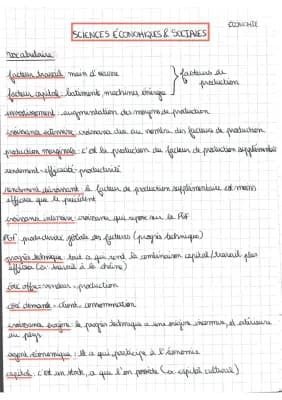 ÉCONOMIE
SCIENCES ÉCONOMIQUES & SOCIALES
vocabulaire:
facteur travail: main d'œuvre
facteurs de production
facteur capital: batiments, machines, énergie
investissement: augmentation des moyens de production
croissance extensive: croissance due au nombre des facteurs de production
production marginale: c'est la production du facteur de production supplémentaire
rendement = efficacité = productivité
rendement décroissant: le facteur de production supplémentaire est moins
efficace que le précédent
croissance intensive: croissance qui repose sur la PGF
PGF: productivité globale des facteurs (progrès technique)
progrès technique: tout ce qui rend la combinaison capital/travail plus
efficace (ex: travail à la chaîne)
côté offre = vendeur = production
côté demande = client = consommation
croissance exogène: le progrès technique a une origine inconnue, et extérieure
au pays
agent économique: tt ce qui participe à l'économie
capital: c'est un stock, ce que l'on possède (ex: capital culturel)